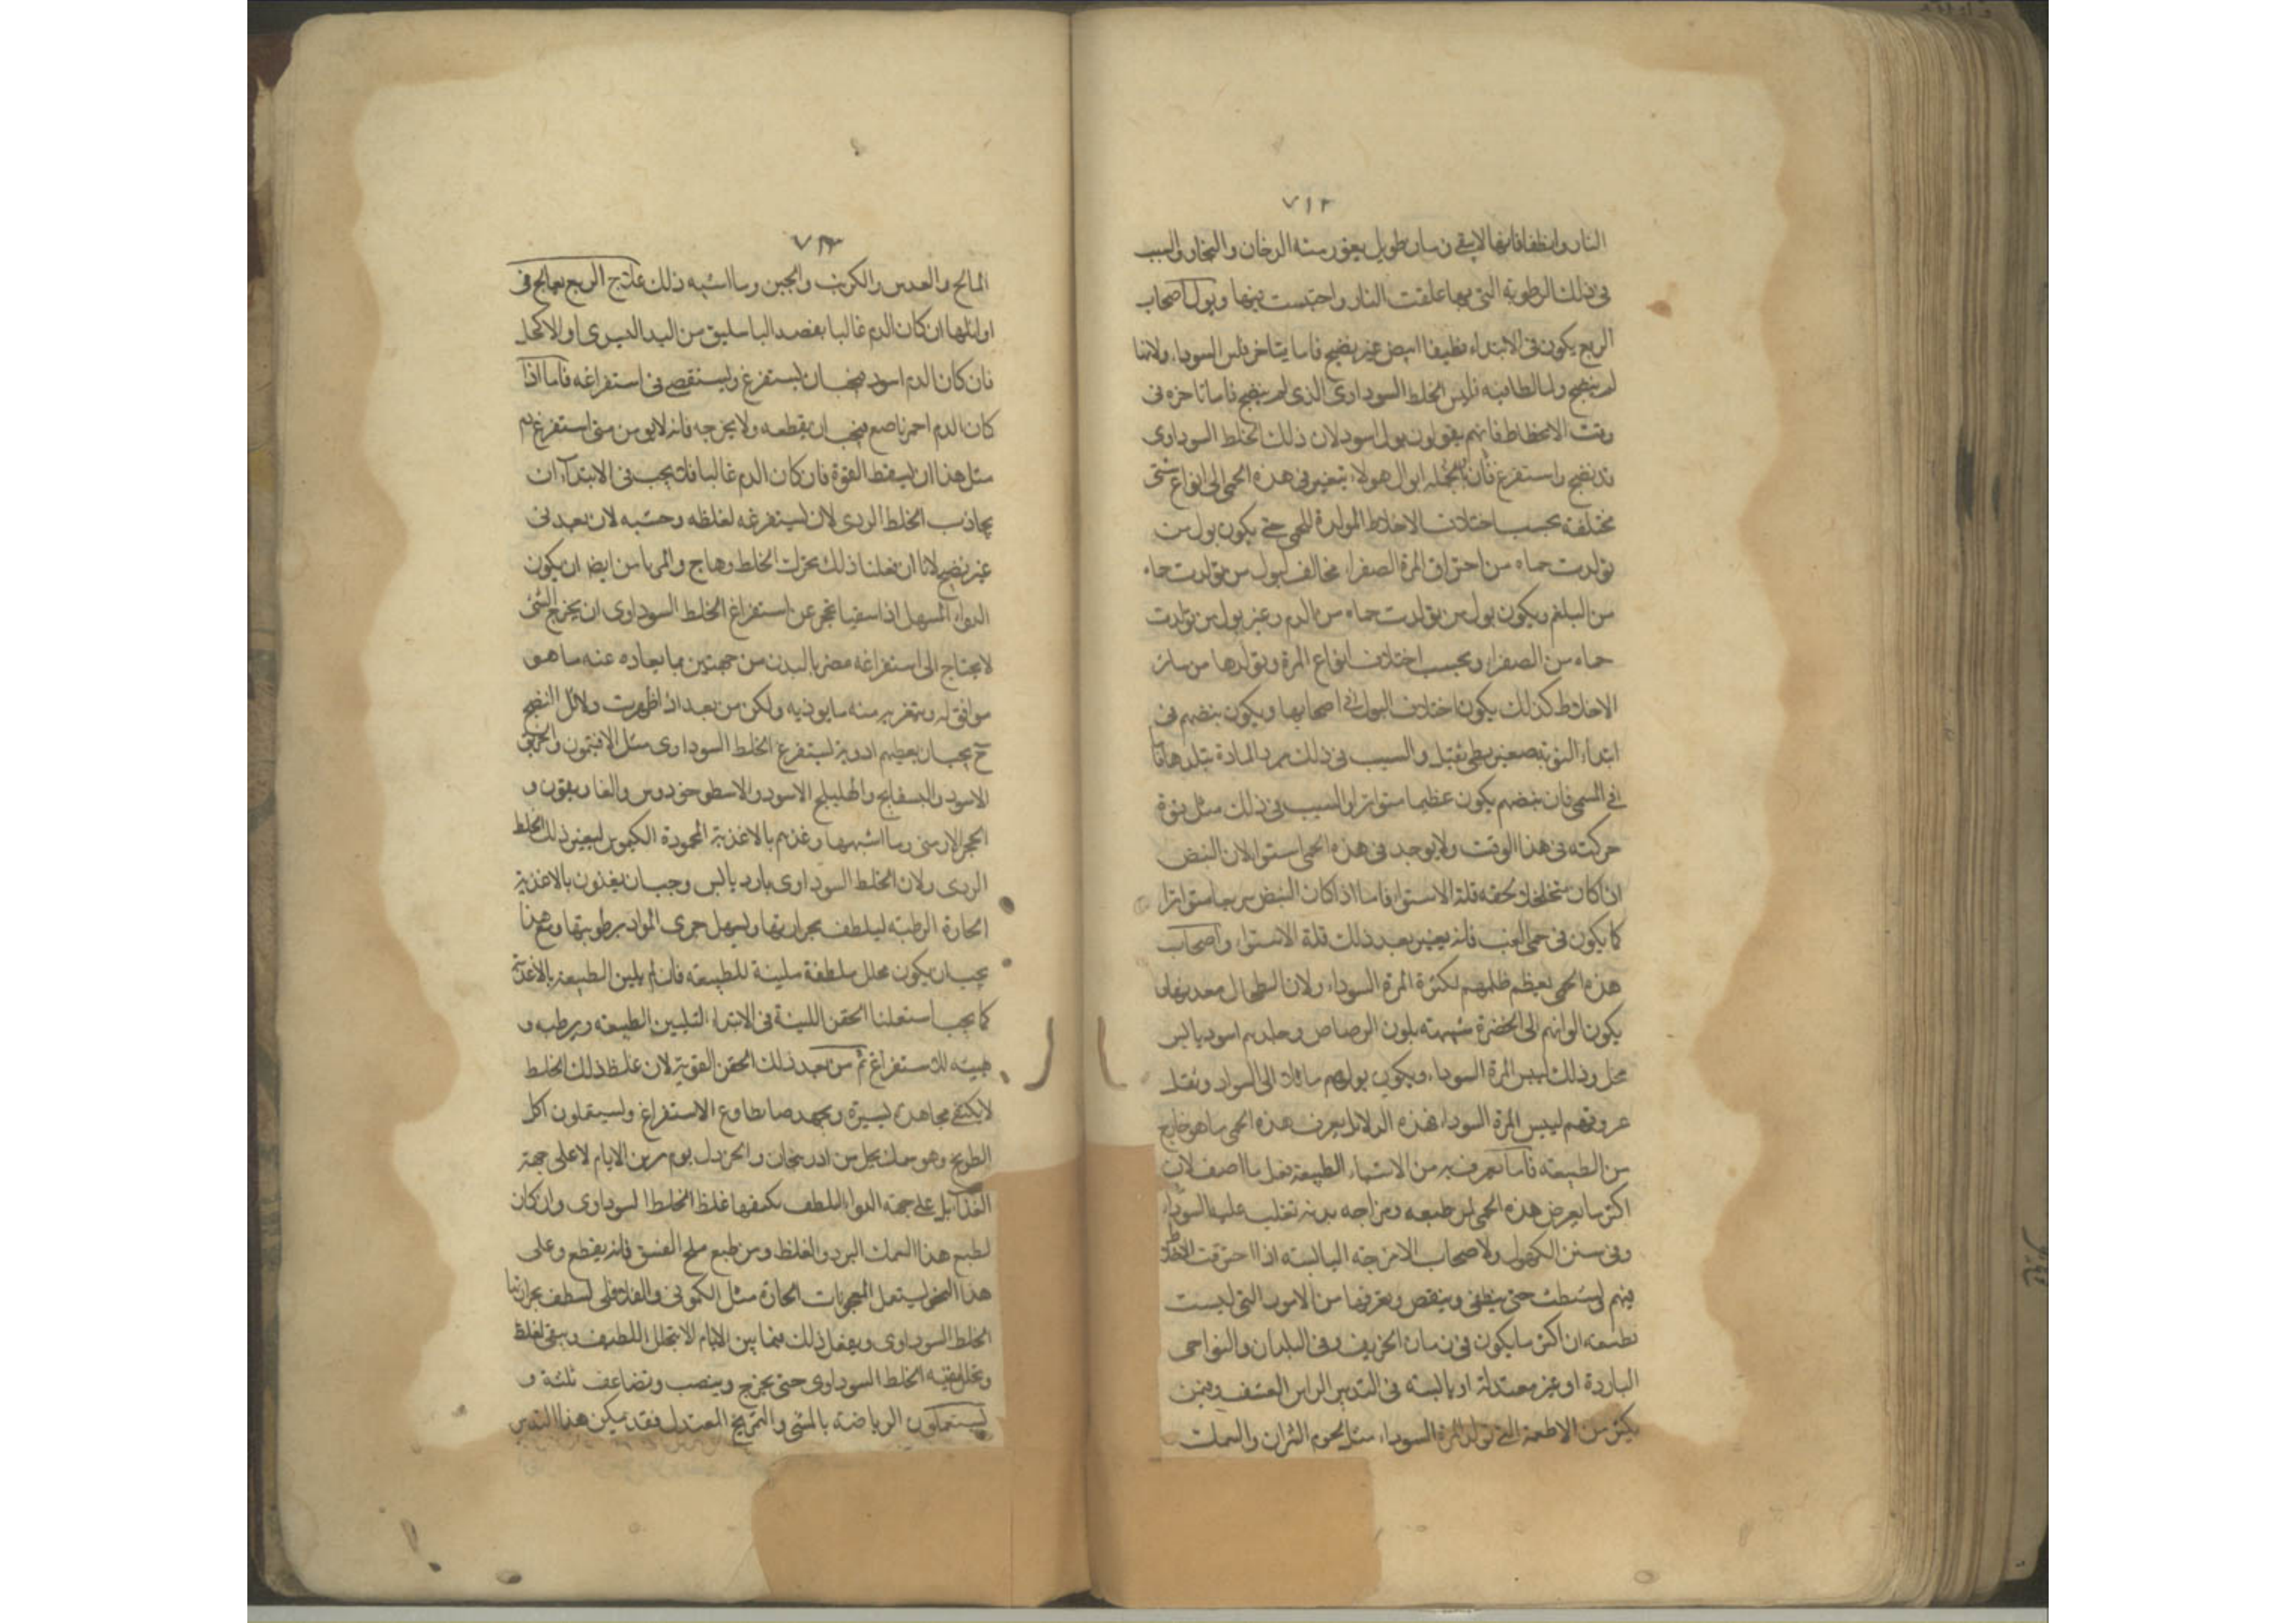 ٧١٢
النار وانطفا فانها لا يبقى زمان طويل يفور منه الدخان والبخار والسبب
فى ذلك الرطوبة التى بها علقت النار واحتبست فيها وبول اصحاب
الربع يكون فى الابتداء نظيفا ابيض غير نضيج فاما يتاخر فليس السوداء ولانها
لم ينضج ولما لطافته فليس الخلط السوداوى الذى لم ينضج فاما تاخره فى
وقت الانحطاط فانهم يقولون بول اسود لان ذلك الخلط السوداوى
قد نضج واستفرغ فان بالجمله ابوال هولاء يتغير فى هذه الحمى الى انواع شتى
مختلفة بحسب اختلاف الاخلاط المولدة للحمى حتى يكون بول من
تولدت حماه من احتراق المرة الصفراء مخالف لبول من تولدت حماه
من البلغم ويكون بول من تولدت حماه من الدم وغير بول من تولدت
حماه من الصفراء وبحسب اختلاف انواع المرة وتولدها من سائر
الاخلاط كذلك يكون اختلاف البول فى اصحابها ويكون نبضهم فى
ابتداء النوبة صغير بطى ثقيل والسبب فى ذلك برد المادة
فى المنتهى فان نبضهم يكون عظيما متواترا والسبب فى ذلك مثل قوة
حركته فى هذا الوقت ولا يوجد فى هذه الحمى استوا لان النبض
اذا كان متخلخلا لحقه قلة الاستوا فاما اذا كان النبض سريعا متواترا
كما يكون فى حمى الغب فانه يعين بعد ذلك قلة الاستوا واصحاب
هذه الحمى يعظم طحالهم لكثرة المرة السوداء ولان الطحال معدنها
يكون الوانهم الى الخضرة شبيهة بلون الرصاص وجلدهم اسود يابس
محل وذلك ليبس المرة السوداء ويكون بولهم مائلا الى السواد وثقل
عروقهم ليبس المرة السوداء فهذه الدلائل يعرف هذه الحمى ما هو خارج
من الطبيعة فاما تعرف به من الاشياء الطبيعة فعل ما اصف لان
اكثر ما يعرض هذه الحمى لمن طبعه ومزاجه بدنه تغلب عليه السوداء
وفى سن الكهول ولاصحاب الامزجة اليابسة اذا احترقت الاخلاط
فيهم حتى ينطفى وينقص وتعرفها من الامور التى ليست
بطبيعة ان اكثر ما يكون فى زمان الخريف وفى البلدان والنواحى
الباردة او غير معتدلة او يابسة فى التدبير
يكثر من الاطعمة التى تولد المرة السوداء مثل لحوم الثيران والسمك
٧١٣
المالح والعدس والكرنب والجبن وما اشبه ذلك علاج الربع يعالج فى
اوائلها ان كان الدم غالبا بفصد الباسليق من اليد اليسرى او الاكحل
فان كان الدم اسود فيجب ان يستفرغ ويستقصى فى استفراغه فاما اذا
كان الدم احمر ناصع فيجب ان يقطعه ولا يخرجه فانه لا يومن متى استفرغ دم
مثل هذا ان يسقط القوة فان كان الدم غالبا فلا يجب فى الابتداء ان
يجاذب الخلط الردى لان يستفرغه لغلظه وخبثه لان بعد فى
غير نضيج لانا ان فعلنا ذلك تحرك الخلط وهاج والمريا من ايضا ان يكون
الدواء المسهل اذا سقيناه عن استفراغ الخلط السوداوى ان يخرج الشى
لا يحتاج الى استفراغه مضر بالبدن من جهتين بما يعاده عنه ما هو
موافق له وبتغريبه منه ما يوذيه ولكن من بعد اذا ظهرت دلائل النضج
ح يجب ان يعطيهم ادوية ليستفرغ الخلط السوداوى مثل الافتيمون والخربق
الاسود والبسفايج والهليلج الاسود والاسطوخودوس والغاريقون و
الحجر الارمنى وما اشبهها وغذهم بالاغذية المحمودة الكيموس ليعين ذلك الخلط
الردى ولان الخلط السوداوى بارد يابس وجب ان يغذون بالاغذية
الحارة الرطبة ليلطف بحرارتها ويسهل جرى المواد برطوبتها ومع هذا
يجب ان يكون محلل ملطفة ملينة للطبيعة فان لم يلين الطبيعة بالاغذية
كما يجب استعملنا الحقن اللينة فى الابتداء لتليين الطبيعة ويرطب و
هيئه للاستفراغ ثم من بعد ذلك الحقن القوية لان غلظ ذلك الخلط
لا يكتفى مجاهدة يسيرة وبجهد ما يطاوع الاستفراغ ويستعملون اكل
الطريخ وهو سمك يجلب من اذربيجان والخردل يوم من الايام لا على جهة
الغذاء بل على جهة الدواء الملطف بكيفها غلظ الخلط السوداوى وان كان
لطبع هذا السمك البرد والغلظ ومن طبع ملح العتيق فانه يقطع وعلى
هذا النحو ليستعمل المعجونات الحارة مثل الكمونى والفلافلى لتلطف بحرارتها
الخلط السوداوى ويفعل ذلك فيما بين الايام لئلا يتحلل اللطيف ويبقى الغلظ
الخلط السوداوى حتى يخرج وينصب وتضاعف ثلثة و
يستعملون الرياضة بالمشى والتمريخ المعتدل فقد يمكن هذا التدبير